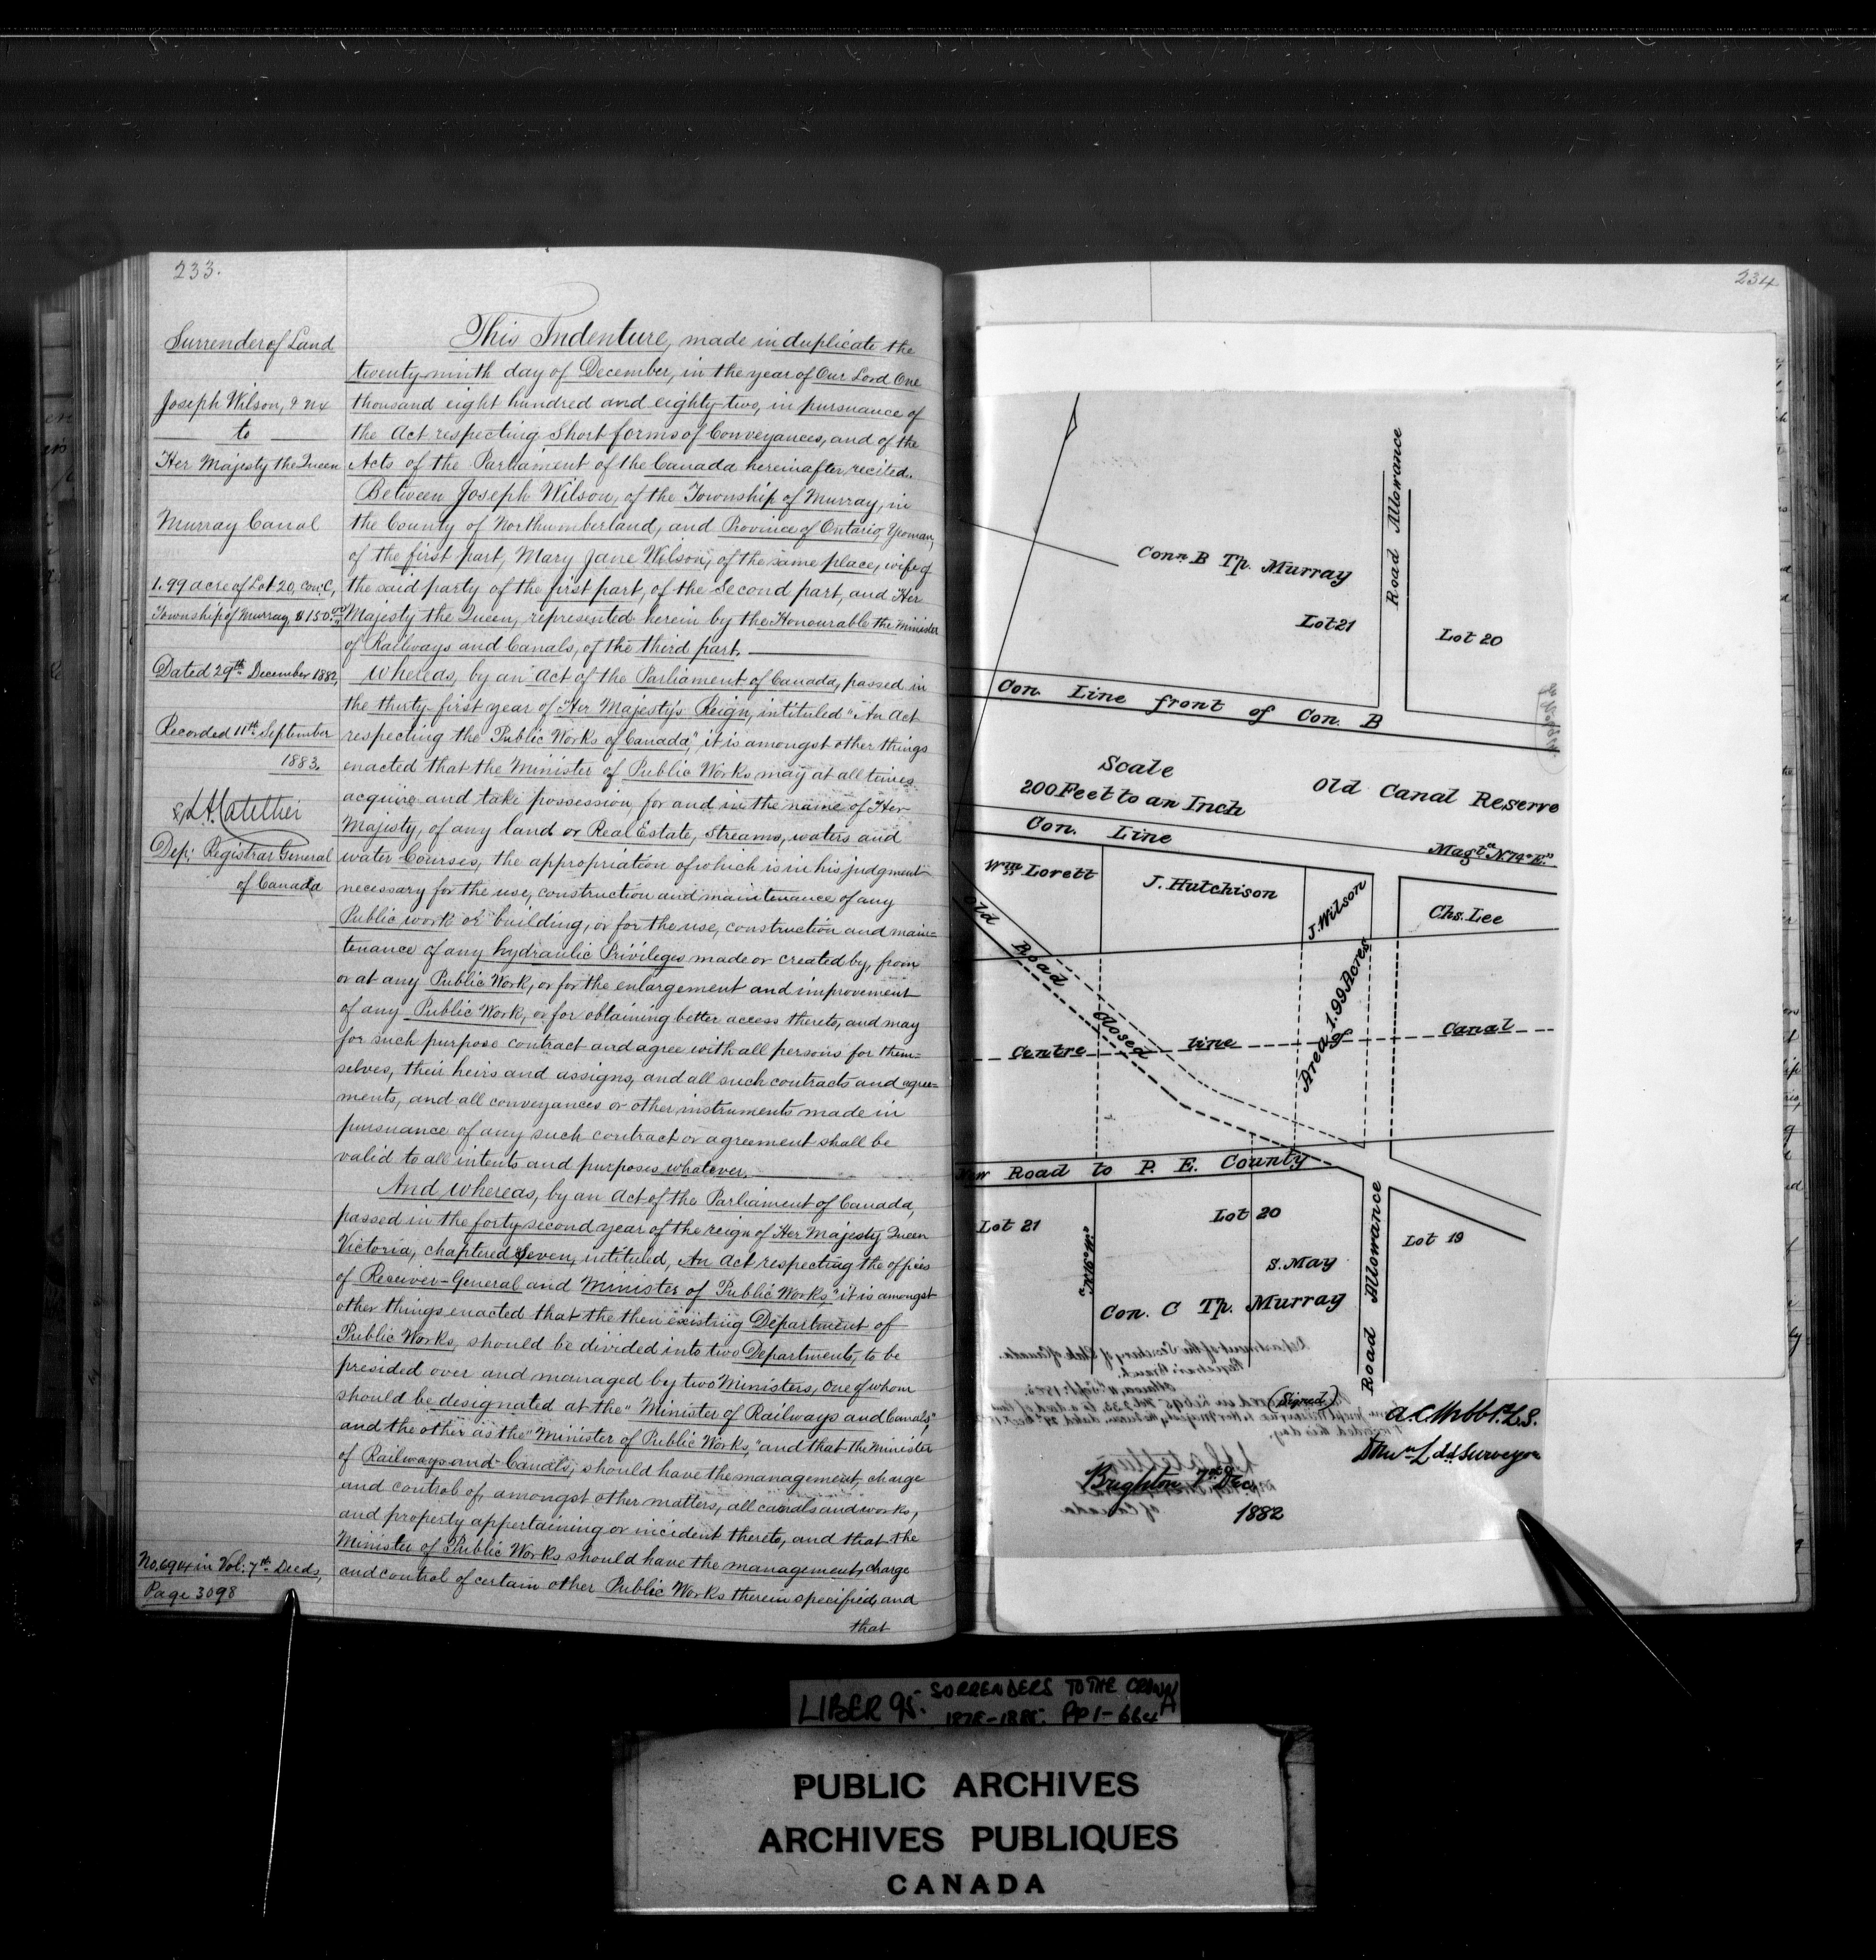 233.
Surrender of Land
Joseph Wilson, & ux
to
Her Majesty the Queen
Murray Canal
1.99 acre of Lot 20, Con: C,
Township of Murray $150.00
Dated 29th December 1882,
Recorded 11th September
1883.
Dep: Registrar General
of Canada
No. 6904 in Vol: 7th Deeds,
Page 3098
This Indenture, made in duplicate the
twenty-ninth day of December, in the year of Our Lord One
thousand eight hundred and eighty-two, in pursuance of
the Act respecting Short forms of Conveyances, and of the
Acts of the Parliament of the Canada hereinafter recited.
Between Joseph Wilson, of the Township of Murray, in
the County of Northumberland, and Province of Ontario, Yeoman,
of the first part, Mary Jane Wilson, of the same place, wife of
the said party of the first part, of the Second part, and Her
Majesty the Queen, represented herein by the Honourable the Minister
of Railways and Canals, of the third part.
Whereas, by an Act of the Parliament of Canada, passed in
the thirty-first year of Her Majesty's Reign, intituled "An Act
respecting the Public Works of Canada," it is amongst other things
enacted that the Minister of Public Works may at all times
acquire and take possession, for and in the name of Her
Majesty, of any land or Real Estate, streams, waters and
water Courses, the appropriation of which is in his judgment
necessary for the use, construction and maintenance of any
Public work or building, or for the use, construction and main=
tenance of any hydraulic Privileges made or created by, from
or at any Public Work, or for the enlargement and improvement
of any Public Work, or for obtaining better access thereto, and may
for such purpose contract and agree with all persons for them=
selves, their heirs and assigns, and all such contracts and agree=
ments, and all conveyances or other instruments made in
pursuance of any such contract or agreement shall be
valid to all intents and purposes whatever.
And whereas, by an Act of the Parliament of Canada,
passed in the forty-second year of the reign of Her Majesty Queen
Victoria, chaptered Seven, intituled, An Act respecting the offices
of Receiver-General and Minister of Public Works," it is amongst
other things enacted that the then existing Department of
Public Works, should be divided into two Departments, to be
presided over and managed by two Ministers, one of whom
should be designated at the "Minister of Railways and Canals,"
and the other as the "Minister of Public Works," and that the Minister
of Railways and Canals, should have the management, charge
and control of, amongst other matters, all canals and works,
and property appertaining or incident thereto, and that the
Minister of Public Works should have the management, charge
and control of certain other Public Works therein specified, and
that
234
Road Allowance
Conn B Tp. Murray
Lot 21
Lot 20
Con. Line front of Con. B
Scale
200 Feet to an Inch
Old Canal Reserve
Con. Line
Magtc N74°E."
Wm Lovett
J. Hutchison
J. Wilson
Chs. Lee
Old Road Closed
Area 1.99 Acres
Centre line of Canal
New Road to P. E. County
Lot 21
Lot 20
Lot 19
"N16°W."
S. May
Con. C Tp. Murray
Road Allowance
(Signed)
Brighton 7th Dec,
1882
LIBER 95. SURRENDERS TO THE CROWN
1878-1885. PP 1-664
PUBLIC ARCHIVES
ARCHIVES PUBLIQUES
CANADA